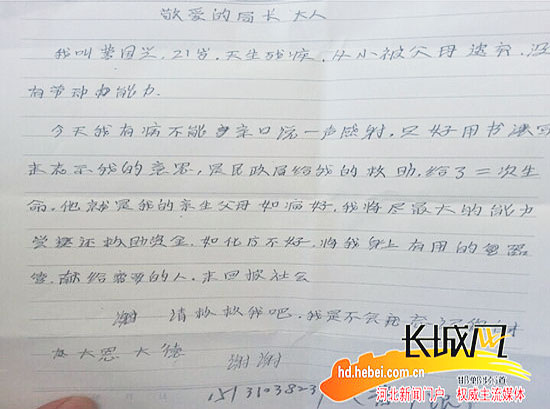 敬爱的局长大人
我叫黎国兰,21岁,天生残疾,从小被父母遗弃,没
有劳动力能力.
今天我有病不能亲口说一声感射,只好用书
来表示我的意思,是民政局给我的救助,给了二次生
命,他就是我的亲生父母如病好,我将尽最大的能力
还救助资金,如化疗不好,将我身上有用的
官,献给需要的人,来回报社会
谢 请救救我吧,我是不会
大恩大德 谢谢
长城网
邯郸频道
hd.hebei.com.cn
河北新闻门户、权威主流媒体